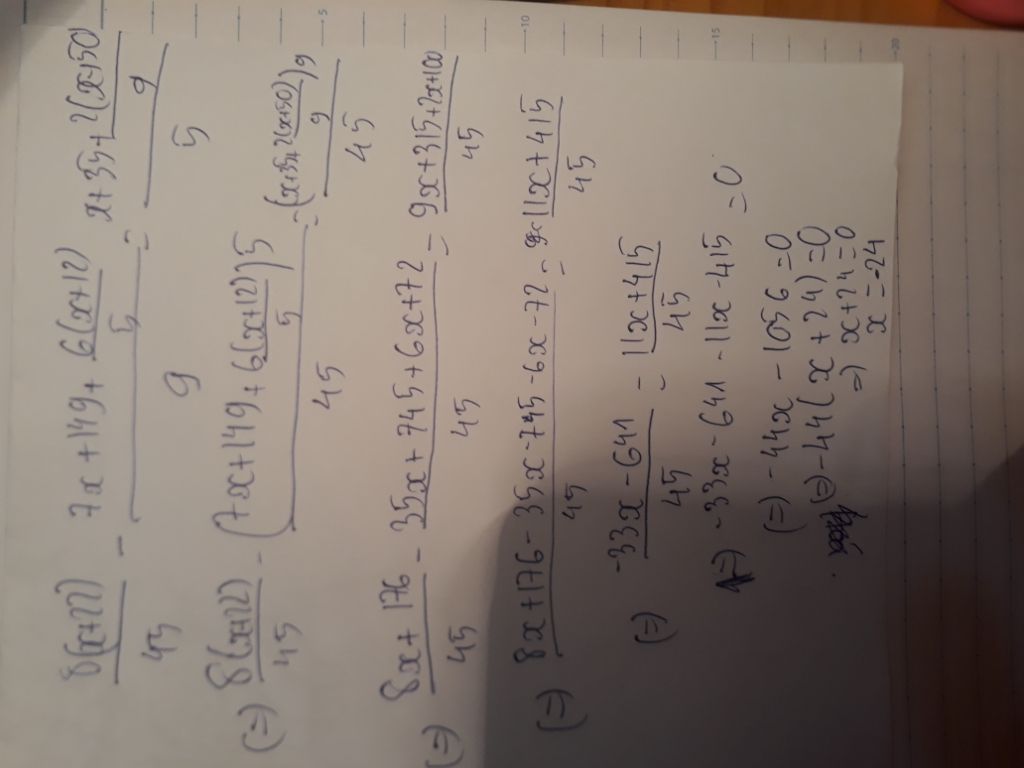 8(x+22)/45 - (7x+149+6(x+12)/5)/9 = (x+35+2(x+50)/9)/5
(=) 8(x+22)/45 - (7x+149+6(x+12)/5)5/45 = (x+35+2(x+50)/9)9/45
(=) 8x+176/45 - 35x+745+6x+72/45 = 9x+315+2x+100/45
(=) 8x+176-35x-745-6x-72/45 = 11x+415/45
(=) -33x-641/45 = 11x+415/45
(=) -33x-641-11x-415=0
(=) -44x-1056=0
(=) -44(x+24)=0
=) x+24=0
x=-24
5
10
15
20